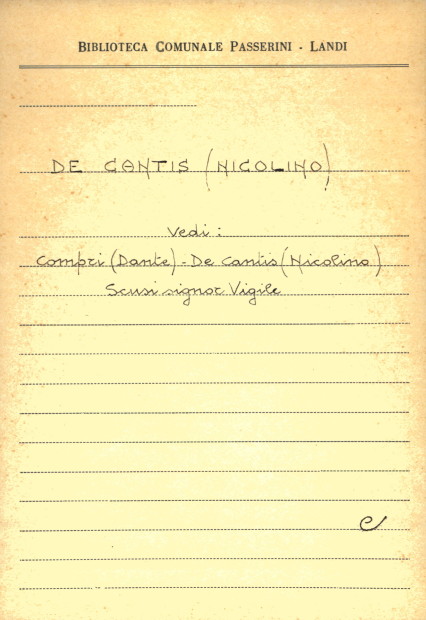 BIBLIOTECA COMUNALE PASSERINI - LANDI
DE CANTIS (NICOLINO)
Vedi :
Compri (Dante) - De Cantis (Nicolino)
Scusi signor Vigile
e